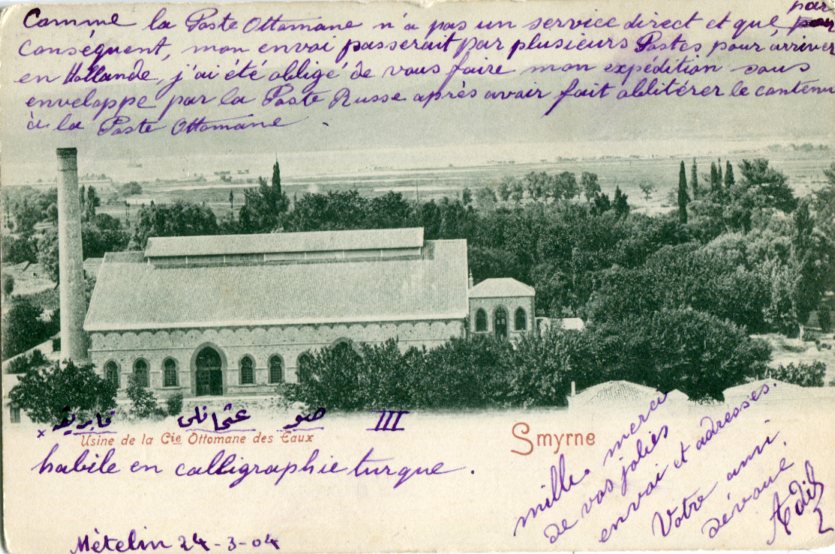 Comme la Poste Ottomane n'a pas un service direct et que, par
conséquent, mon envoi passerait par plusieurs Postes pour arriver
en Hollande, j'ai été obligé de vous faire mon expédition sous
enveloppe par la Poste Russe après avoir fait oblitérer le contenu
à la Poste Ottomane.
صو عثمانلی فابریقه
III
x Usine de la Cie Ottomane des Eaux
Smyrne
habile en calligraphie turque.
mille merci
de vos jolies
envoi et adresses.
Votre ami
dévoué
Adil
Mételin 24-3-04